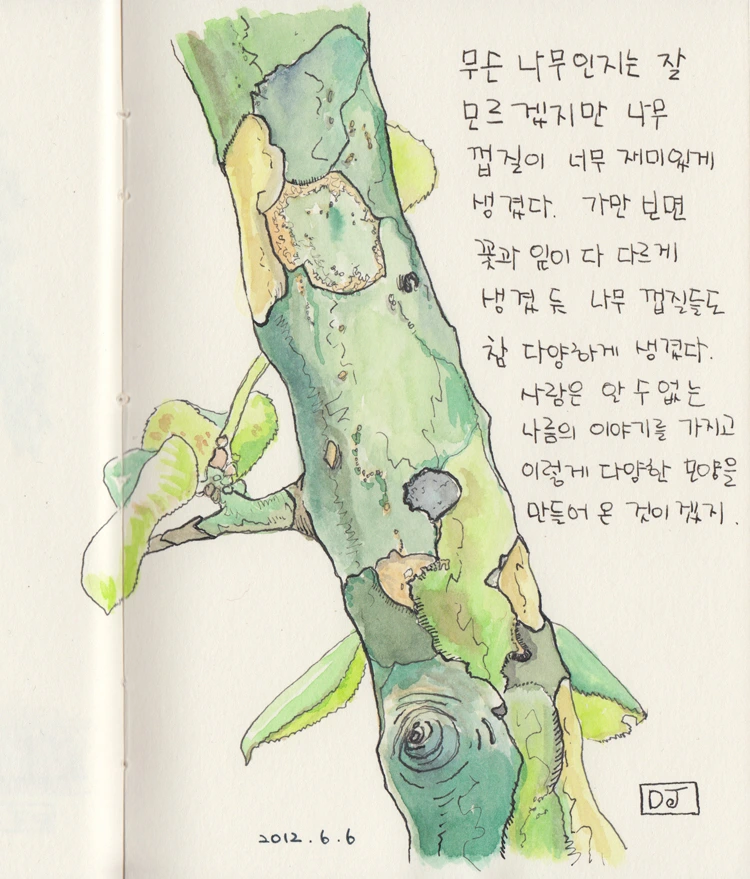 무슨 나무인지는 잘
모르겠지만 나무
껍질이 너무 재미있게
생겼다. 가만 보면
꽃과 잎이 다 다르게
생겼듯 나무 껍질들도
참 다양하게 생겼다.
사람은 알 수 없는
나름의 이야기를 가지고
이렇게 다양한 모양을
만들어 온 것이겠지.
DJ
2012.6.6